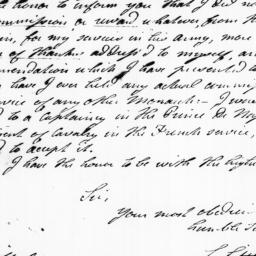 honor to inform you that I did no
Commission or reward whatever from th
in, for my services in the Army, more
of thanks address'd to myself, an
mmendation which I have presented to
have I ever held any actual commis
vice of any other Monarch — I was
d to a Captaincy in the Prince De
ent of Cavalry in the French service,
d to accept it.
I have the honor to be with the high
Sir,
Your most obedien
humble Se